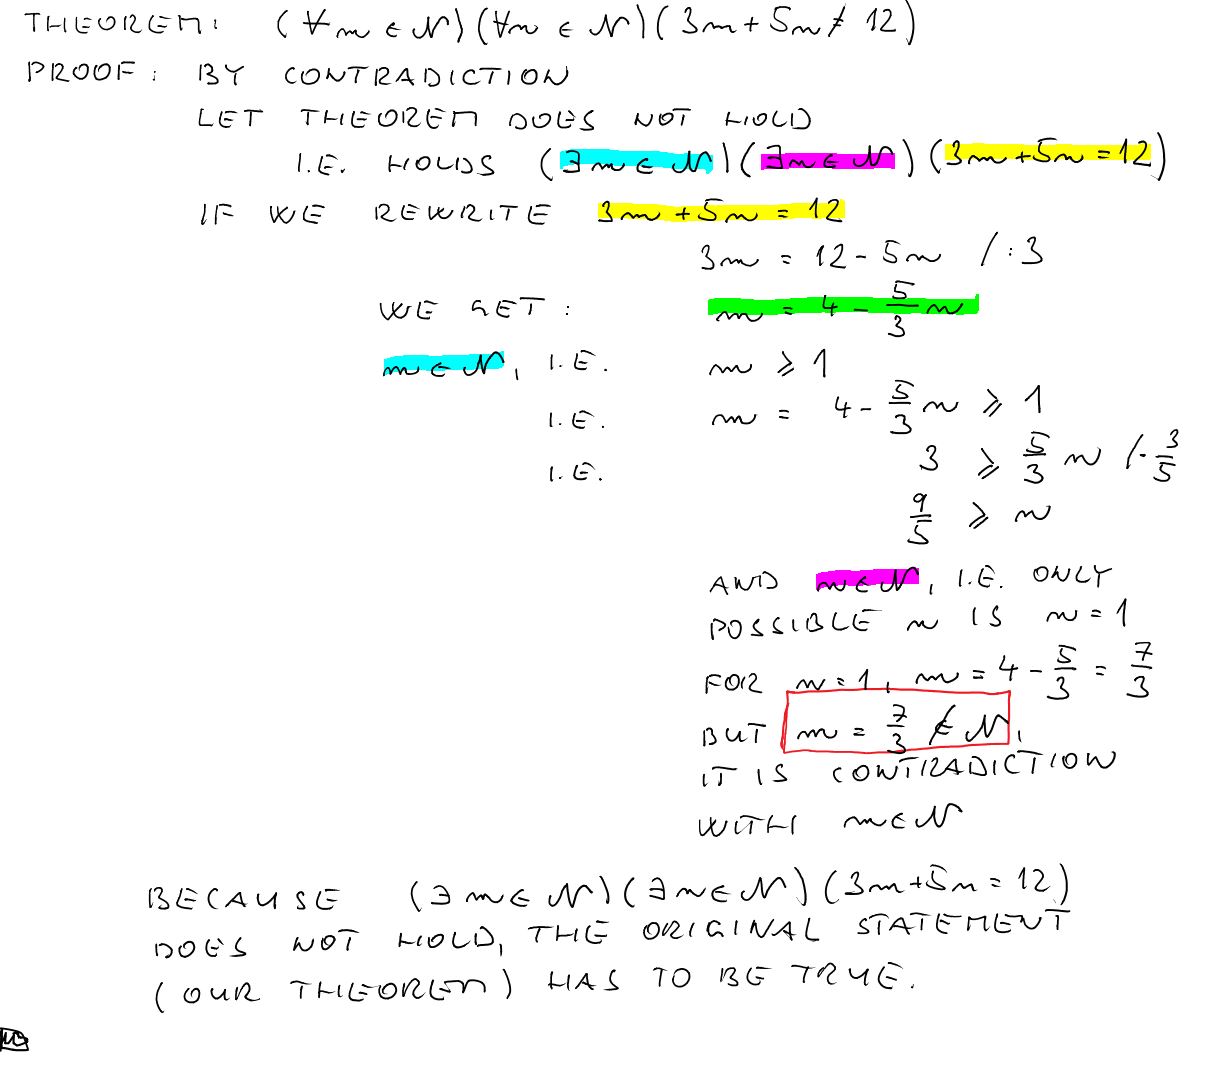 THEOREM: (∀m ∈ N)(∀n ∈ N)(3m + 5n ≠ 12)
PROOF: BY CONTRADICTION
LET THEOREM DOES NOT HOLD
I.E. HOLDS (∃m ∈ N)(∃n ∈ N)(3m + 5n = 12)
IF WE REWRITE 3m + 5n = 12
3m = 12 - 5n /:3
WE GET: m = 4 - 5/3 n
m ∈ N, I.E. m ⩾ 1
I.E. m = 4 - 5/3 n ⩾ 1
I.E. 3 ⩾ 5/3 n /· 3/5
9/5 ⩾ n
AND n ∈ N, I.E. ONLY
POSSIBLE n IS n = 1
FOR n = 1, m = 4 - 5/3 = 7/3
BUT m = 7/3 ∉ N,
IT IS CONTRADICTION
WITH m ∈ N
BECAUSE (∃m ∈ N)(∃n ∈ N)(3m + 5n = 12)
DOES NOT HOLD, THE ORIGINAL STATEMENT
(OUR THEOREM) HAS TO BE TRUE.